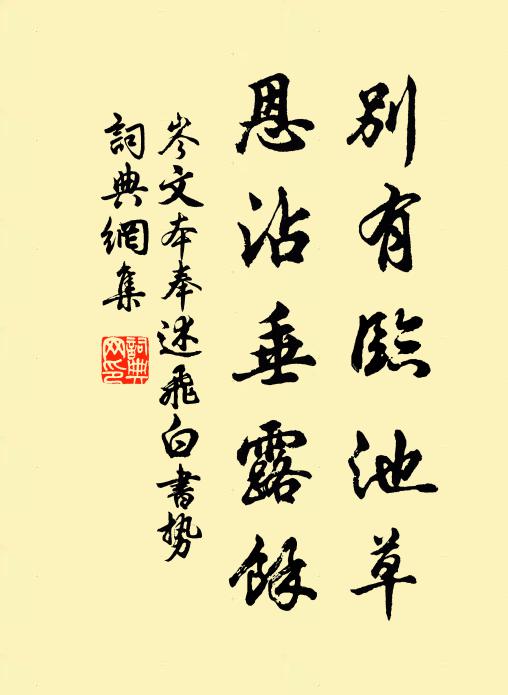 別有臨池草
恩沾垂露餘
岑文本奉述飛白書勢
詞典網集
詞典網印